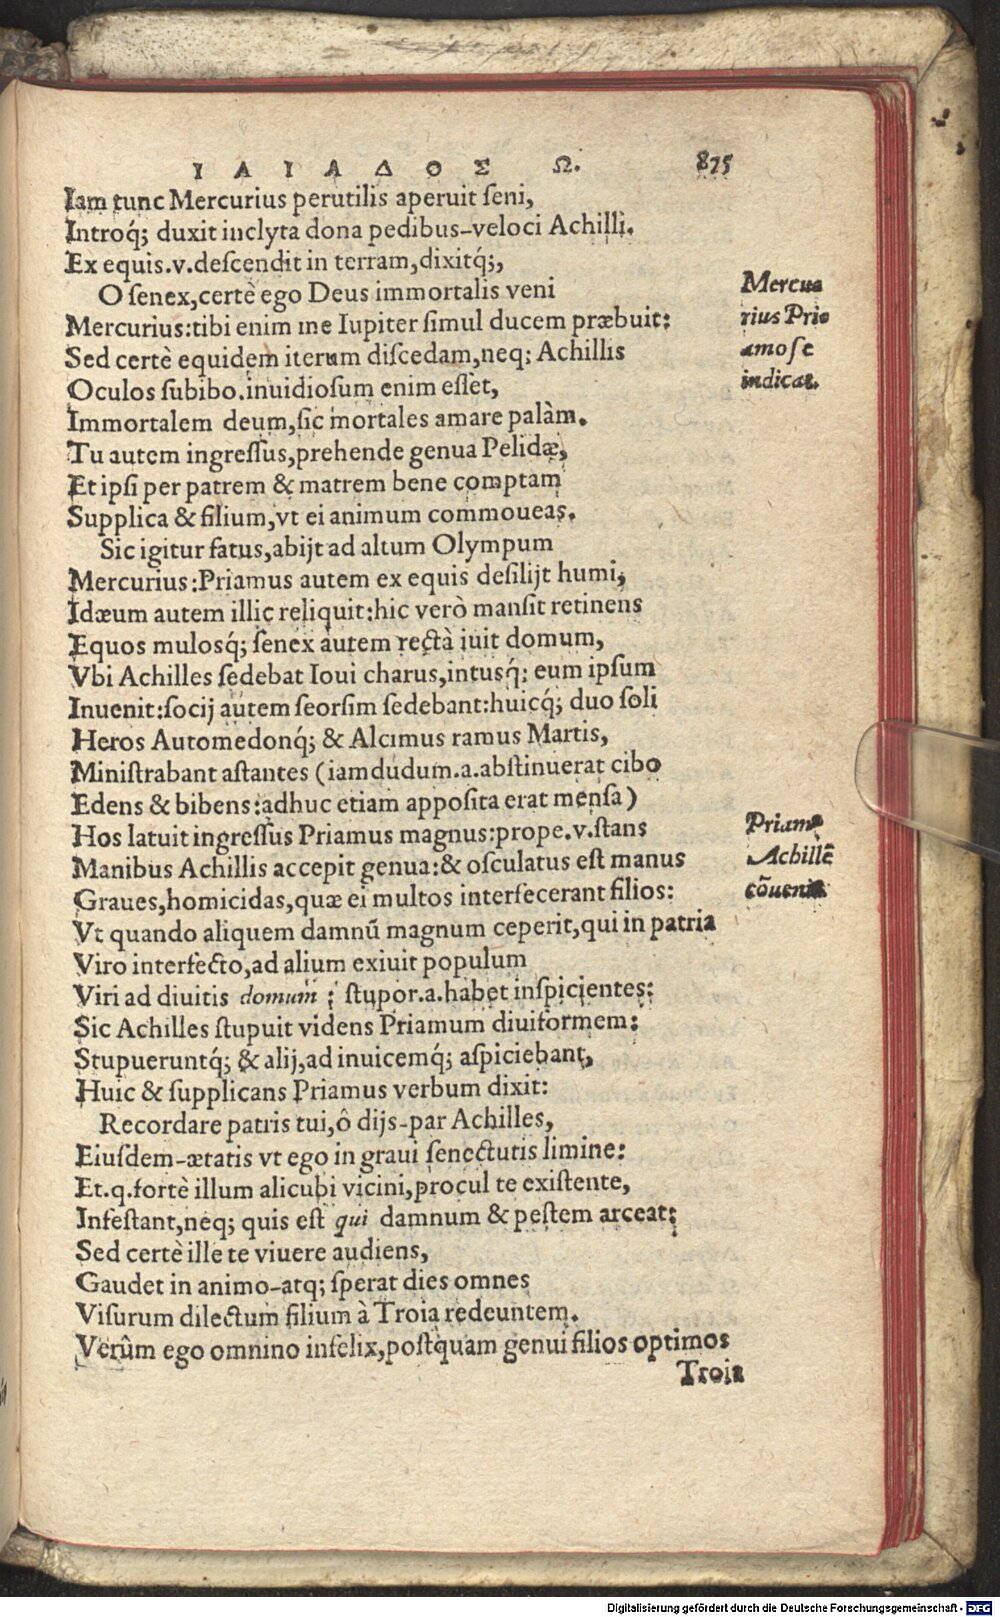 ΙΛΙΑΔΟΣ Ω. 875
Iam tunc Mercurius perutilis aperuit ſeni,
Introq́; duxit inclyta dona pedibus-veloci Achilli.
Ex equis.v.deſcendit in terram,dixitq́;,
O ſenex,certè ego Deus immortalis veni
Mercurius:tibi enim me Iupiter ſimul ducem præbuit:
Sed certè equidem iterum diſcedam,neq; Achillis
Oculos ſubibo.inuidioſum enim eſſet,
Immortalem deum,ſic mortales amare palàm.
Tu autem ingreſſus,prehende genua Pelidæ,
Et ipſi per patrem & matrem bene comptam
Supplica & filium,vt ei animum commoueas.
Sic igitur fatus,abijt ad altum Olympum
Mercurius:Priamus autem ex equis deſilijt humi,
Idæum autem illic reliquit:hic verò manſit retinens
Equos mulosq́; ſenex autem rectà iuit domum,
Vbi Achilles ſedebat Ioui charus,intusq́; eum ipſum
Inuenit:ſocij autem ſeorſim ſedebant:huicq́; duo ſoli
Heros Automedonq́; & Alcimus ramus Martis,
Miniſtrabant aſtantes (iamdudum.a.abſtinuerat cibo
Edens & bibens:adhuc etiam appoſita erat menſa)
Hos latuit ingreſſus Priamus magnus:prope.v.ſtans
Manibus Achillis accepit genua:& oſculatus eſt manus
Graues,homicidas,quæ ei multos interfecerant filios:
Vt quando aliquem damnū magnum ceperit,qui in patria
Viro interfecto,ad alium exiuit populum
Viri ad diuitis domum : ſtupor.a.habet inſpicientes:
Sic Achilles ſtupuit videns Priamum diuiformem:
Stupueruntq́; & alij,ad inuicemq́; aſpiciebant,
Huic & ſupplicans Priamus verbum dixit:
Recordare patris tui,ô dijs-par Achilles,
Eiuſdem-ætatis vt ego in graui ſenectutis limine:
Et.q.fortè illum alicubi vicini,procul te exiſtente,
Infeſtant,neq; quis eſt qui damnum & peſtem arceat:
Sed certè ille te viuere audiens,
Gaudet in animo-atq; ſperat dies omnes
Viſurum dilectum filium à Troia redeuntem.
Verûm ego omnino infelix,poſtquam genui filios optimos
Troia
Mercu
rius Pri
amo ſe
indicat.
Priam
Achillē
cōuenit.
Digitalisierung gefördert durch die Deutsche Forschungsgemeinschaft - DFG